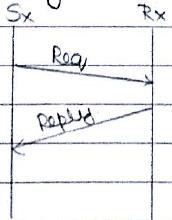 Sx Rx
Req
Replyd